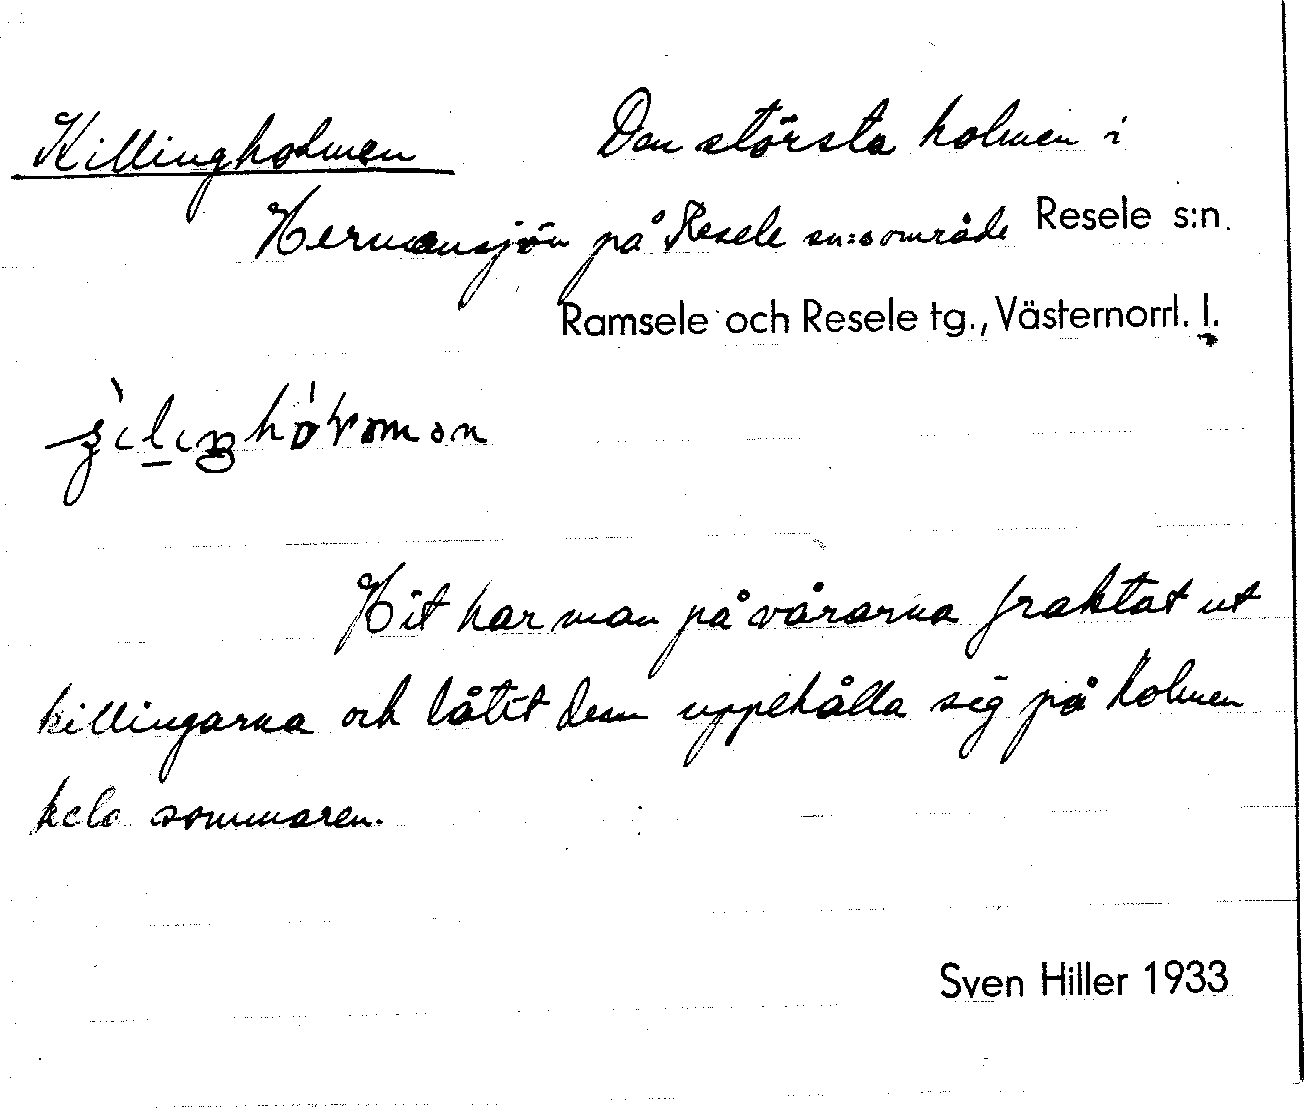 Killingholmen Den största holmen i
Hermansjön på Resele sn:s område Resele s:n.
Ramsele och Resele tg., Västernorrl. l.
Hit har man på vårarna fraktat ut
killingarna och låtit dem uppehålla sig på holmen
hela sommaren.
Sven Hiller 1933